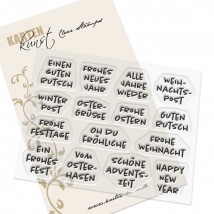 KARTEN
Kunst
Clear Stamps
EINEN
GUTEN
RUTSCH
FROHES
NEUES
JAHR
ALLE
JAHRE
WIEDER
WEIH-
NACHTS-
POST
WINTER
POST
OSTER-
GRÜSSE
FROHE
OSTERN
GUTEN
RUTSCH
FROHE
FESTTAGE
OH DU
FRÖHLICHE
FROHE
WEIHNACHT
EIN
FROHES
FEST
VOM
OSTER-
HASEN
SCHÖNE
ADVENTS-
ZEIT
HAPPY
NEW
YEAR